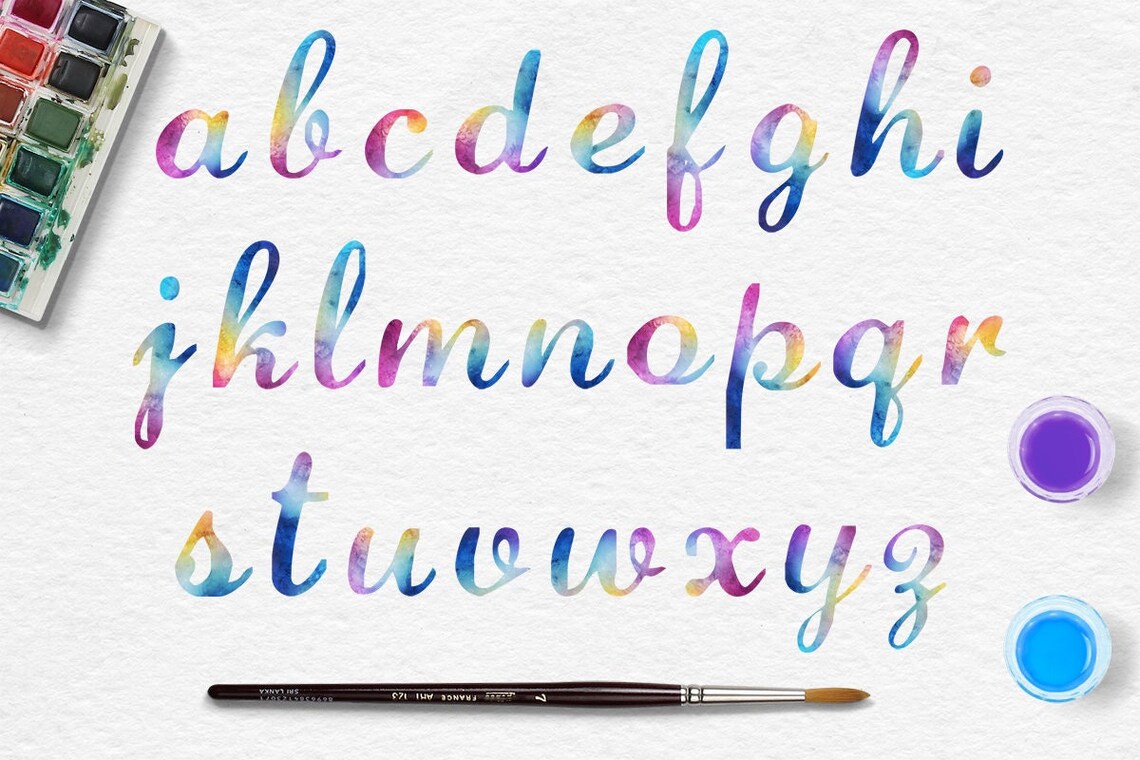 abcdefghi
jklmnopqr
stuvwxyz
7 FRANCE AMI 123
SRI LANKA